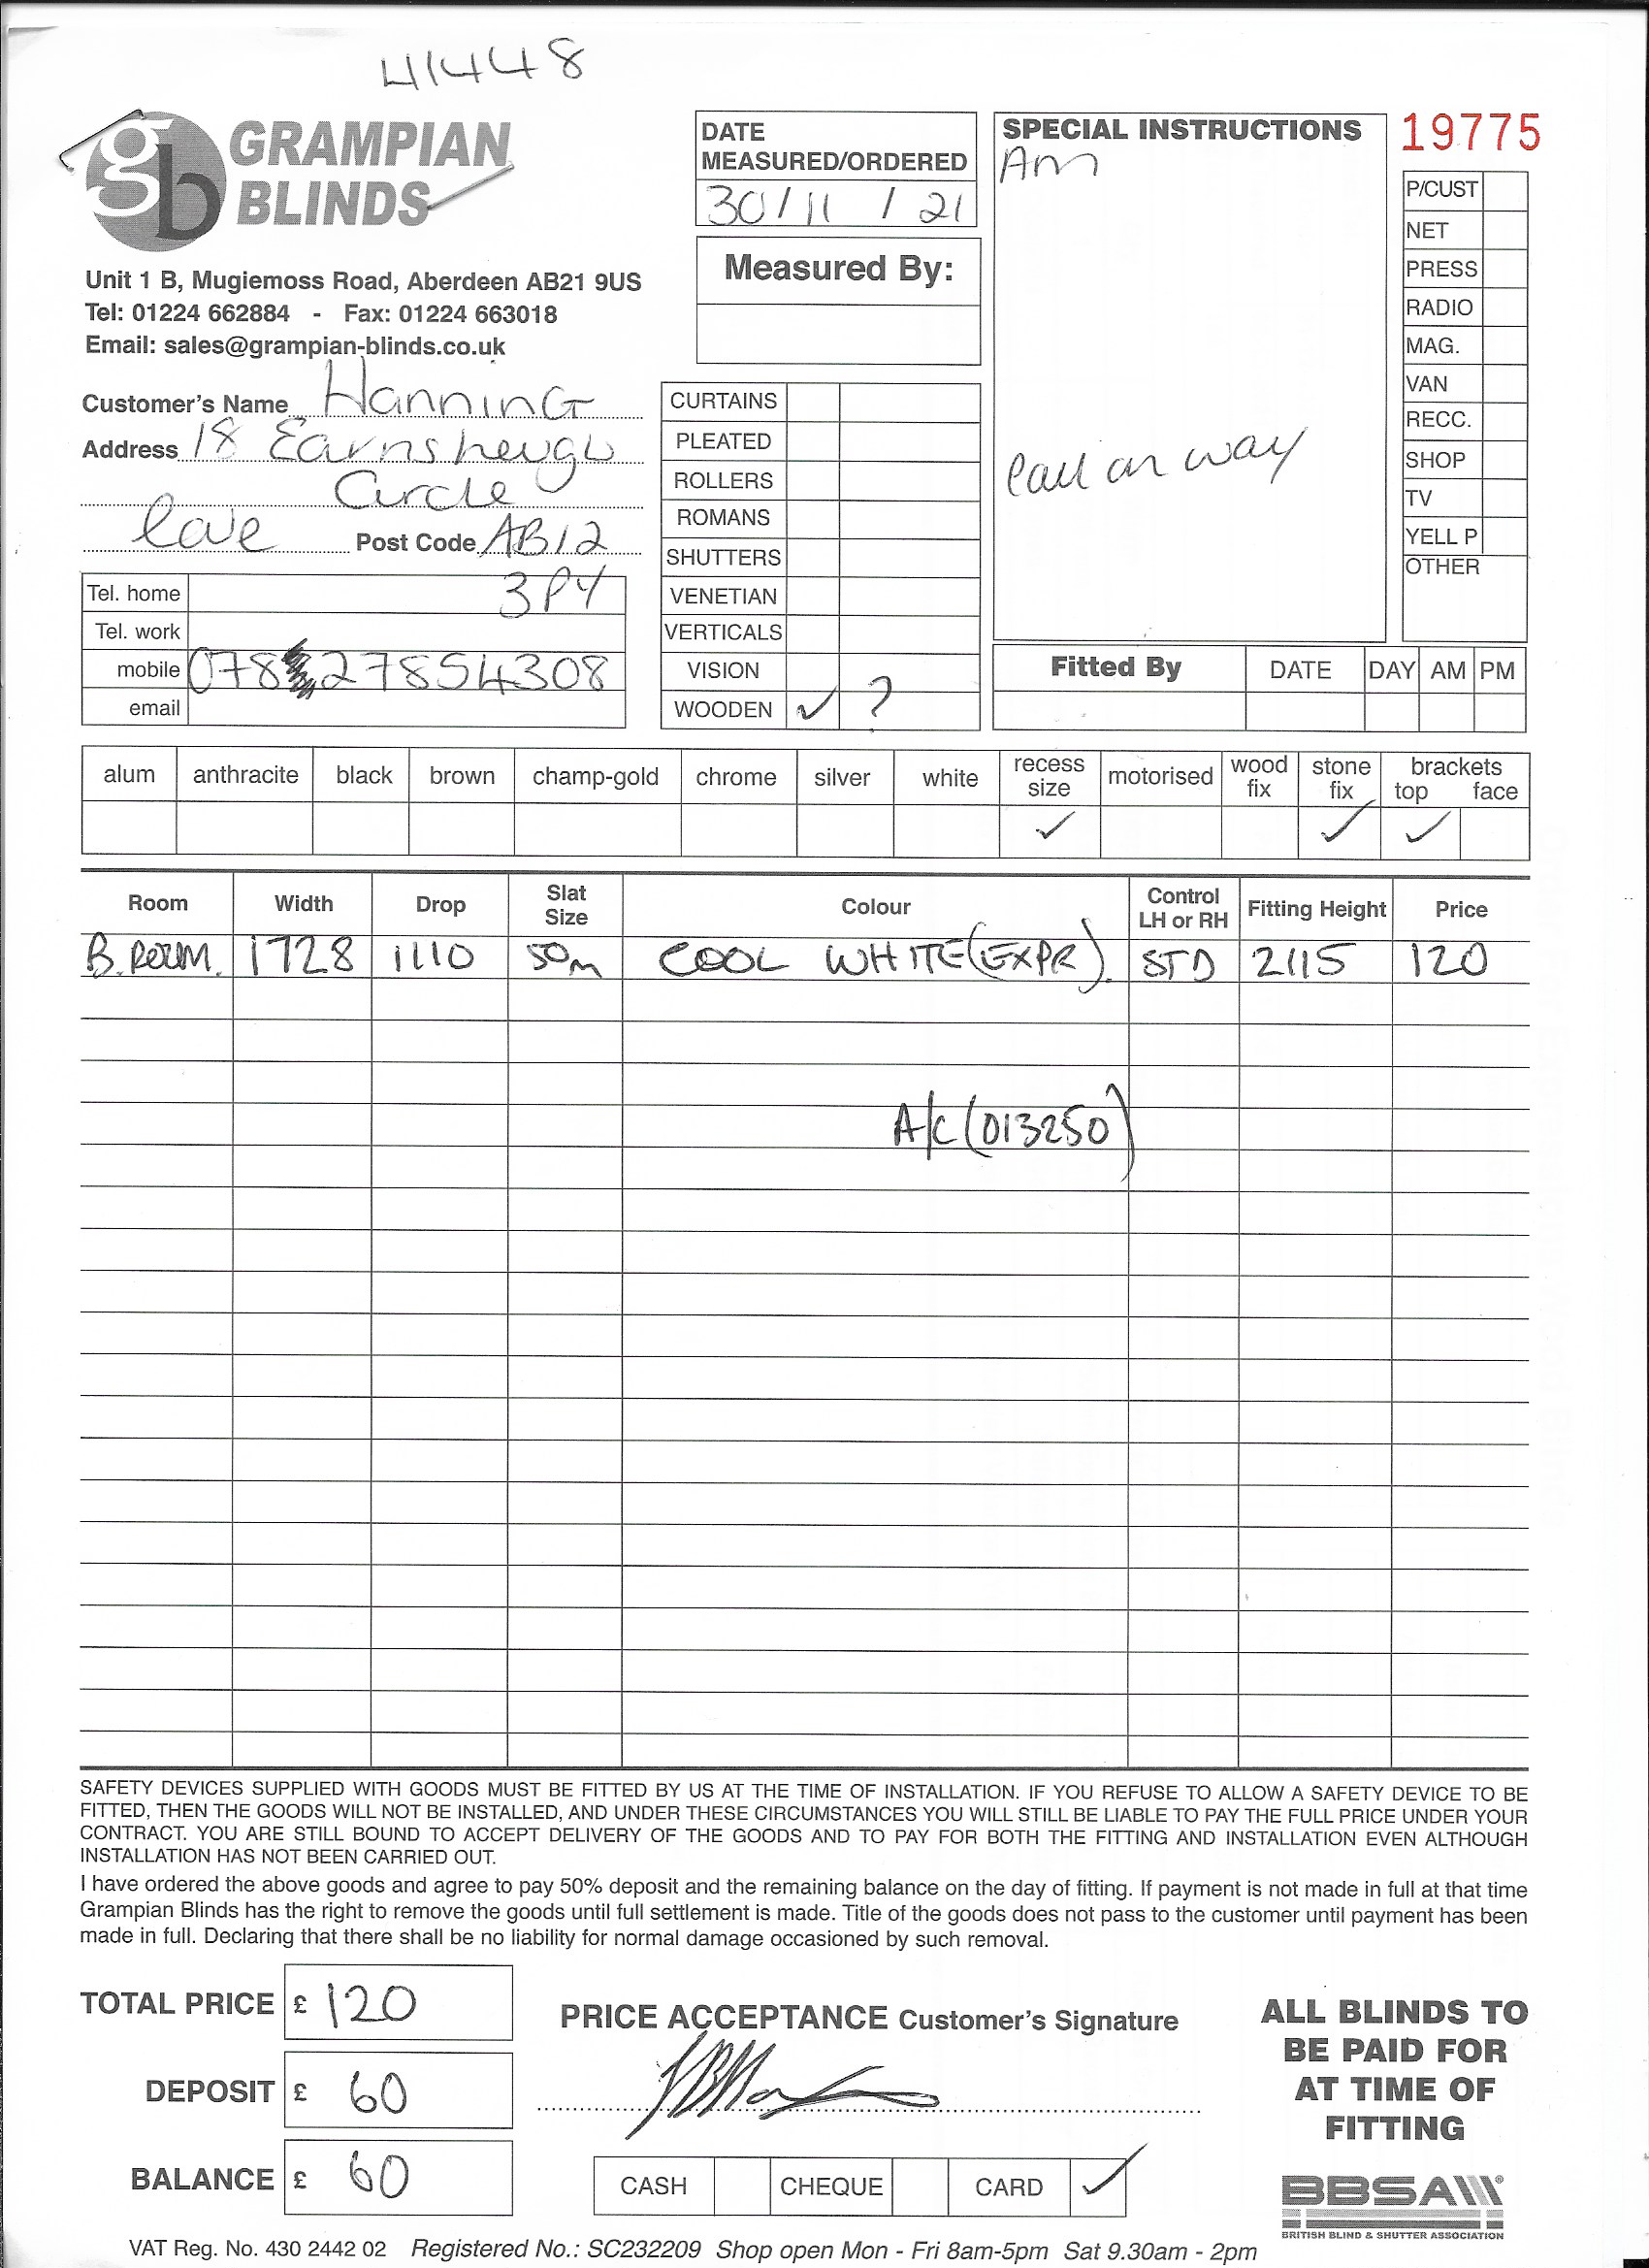 41448
gb GRAMPIAN
BLINDS
Unit 1 B, Mugiemoss Road, Aberdeen AB21 9US
Tel: 01224 662884 - Fax: 01224 663018
Email: sales@grampian-blinds.co.uk
Customer's Name Hanning
Address 18 Earnsheugh
Circle
Cove Post Code AB12
3PY
Tel. home
Tel. work
mobile 07827854308
email
DATE
MEASURED/ORDERED
30/11/21
Measured By:
CURTAINS
PLEATED
ROLLERS
ROMANS
SHUTTERS
VENETIAN
VERTICALS
VISION
WOODEN ✓ ?
SPECIAL INSTRUCTIONS
Am
Call on way
19775
P/CUST
NET
PRESS
RADIO
MAG.
VAN
RECC.
SHOP
TV
YELL P
OTHER
Fitted By DATE DAY AM PM
alum anthracite black brown champ-gold chrome silver white recess size motorised wood fix stone fix brackets top face
✓ ✓ ✓
Room Width Drop Slat Size Colour Control LH or RH Fitting Height Price
B.ROOM. 1728 1110 50m COOL WHITE (EXPR). STD 2115 120
A/C (013250)
SAFETY DEVICES SUPPLIED WITH GOODS MUST BE FITTED BY US AT THE TIME OF INSTALLATION. IF YOU REFUSE TO ALLOW A SAFETY DEVICE TO BE
FITTED, THEN THE GOODS WILL NOT BE INSTALLED, AND UNDER THESE CIRCUMSTANCES YOU WILL STILL BE LIABLE TO PAY THE FULL PRICE UNDER YOUR
CONTRACT. YOU ARE STILL BOUND TO ACCEPT DELIVERY OF THE GOODS AND TO PAY FOR BOTH THE FITTING AND INSTALLATION EVEN ALTHOUGH
INSTALLATION HAS NOT BEEN CARRIED OUT.
I have ordered the above goods and agree to pay 50% deposit and the remaining balance on the day of fitting. If payment is not made in full at that time
Grampian Blinds has the right to remove the goods until full settlement is made. Title of the goods does not pass to the customer until payment has been
made in full. Declaring that there shall be no liability for normal damage occasioned by such removal.
TOTAL PRICE £ 120
DEPOSIT £ 60
BALANCE £ 60
PRICE ACCEPTANCE Customer's Signature
CASH CHEQUE CARD ✓
ALL BLINDS TO
BE PAID FOR
AT TIME OF
FITTING
BBSA®
BRITISH BLIND & SHUTTER ASSOCIATION
VAT Reg. No. 430 2442 02 Registered No.: SC232209 Shop open Mon - Fri 8am-5pm Sat 9.30am - 2pm